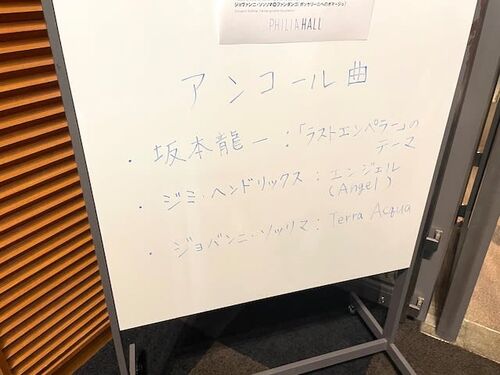 ジョヴァンニ・ソッリマ
ファンダンゴ: ボッケリーニへのオマージュ
PHILIAHALL
アンコール曲
・坂本龍一:「ラストエンペラー」の
テーマ
・ジミ・ヘンドリックス:エンジェル
(Angel)
・ジョバンニ・ソッリマ:Terra Acqua